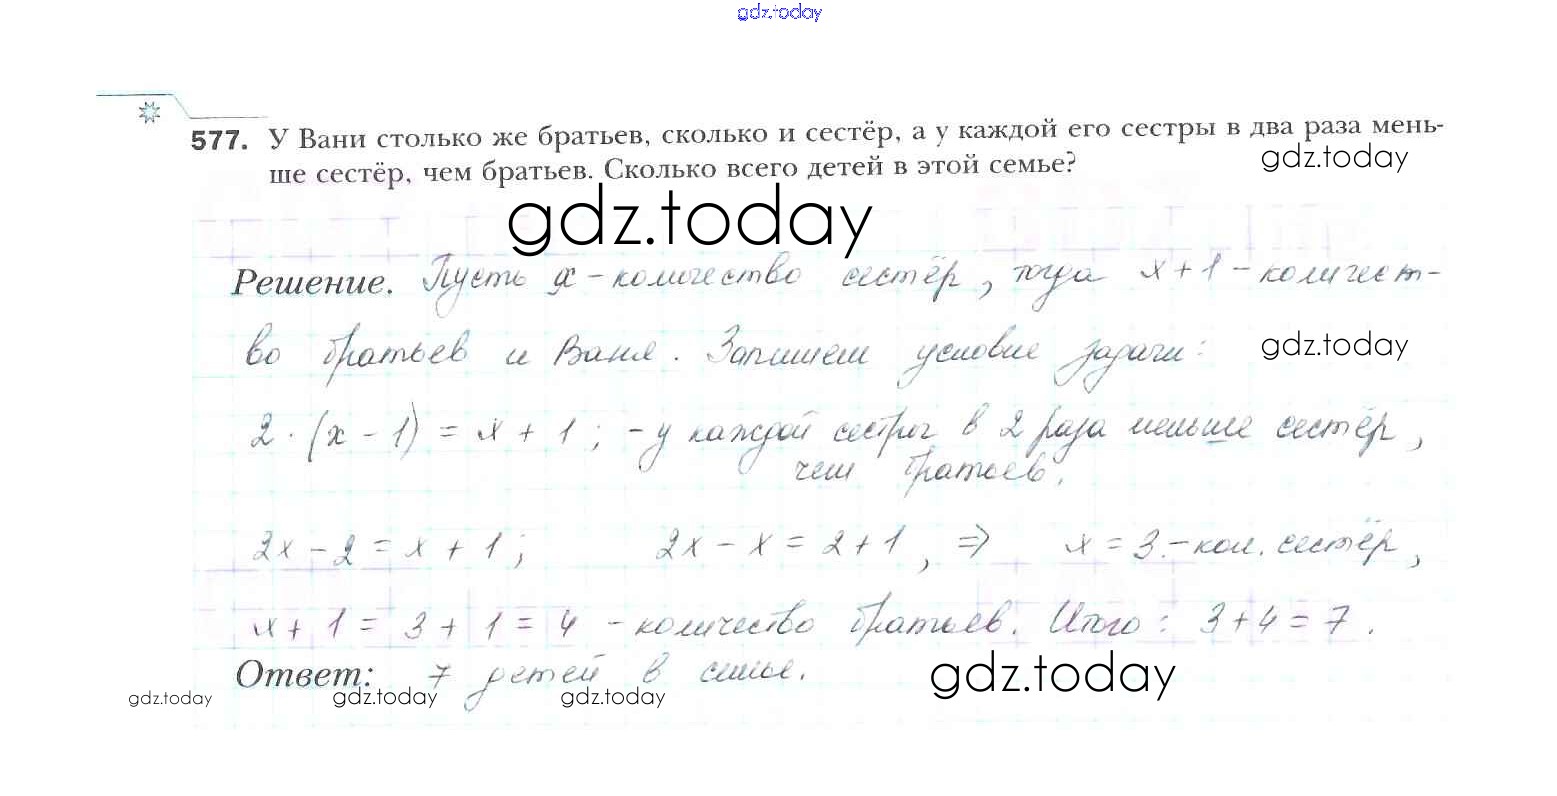 gdz.today
577. У Вани столько же братьев, сколько и сестёр, а у каждой его сестры в два раза мень-
gdz.today
ше сестёр, чем братьев. Сколько всего детей в этой семье?
gdz.today
Решение. Пусть x - количество сестёр, тогда x + 1 - количест-
во братьев и Ваня. Запишем условие задачи:
gdz.today
2 · (x - 1) = x + 1; - у каждой сестры в 2 раза меньше сестёр,
чем братьев.
2x - 2 = x + 1; 2x - x = 2 + 1, ⇒ x = 3. - кол. сестёр,
x + 1 = 3 + 1 = 4 - количество братьев. Итого: 3 + 4 = 7.
Ответ: 7 детей в семье.
gdz.today
gdz.today gdz.today gdz.today